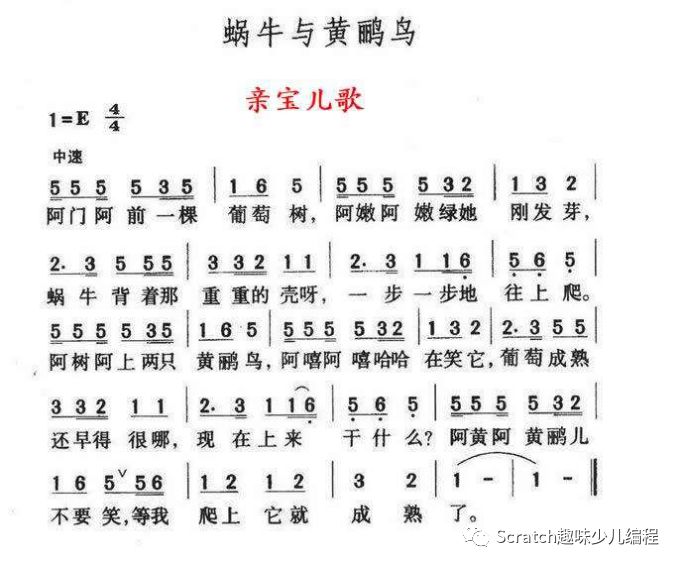 蜗牛与黄鹂鸟
亲宝儿歌
1=E 4/4
中速
5 5 5 5 3 5 | 1 6 5 | 5 5 5 5 3 2 | 1 3 2 |
阿门阿前一棵 葡萄树，阿嫩阿嫩绿她 刚发芽，
2· 3 5 5 5 | 3 3 2 1 1 | 2· 3 1 1 6 | 5 6 5 |
蜗牛背着那 重重的壳呀，一步一步地 往上爬。
5 5 5 5 3 5 | 1 6 5 | 5 5 5 5 3 2 | 1 3 2 | 2· 3 5 5 |
阿树阿上两只 黄鹂鸟，阿嘻阿嘻哈哈 在笑它，葡萄成熟
3 3 2 1 1 | 2· 3 1 1 6 | 5 6 5 | 5 5 5 5 3 2 |
还早得很哪，现在上来 干什么？阿黄阿黄鹂儿
1 6 5 ∨ 5 6 | 1 2 1 2 | 3 2 | 1 - | 1 - ‖
不要笑，等我 爬上它就 成熟了。
Scratch趣味少儿编程